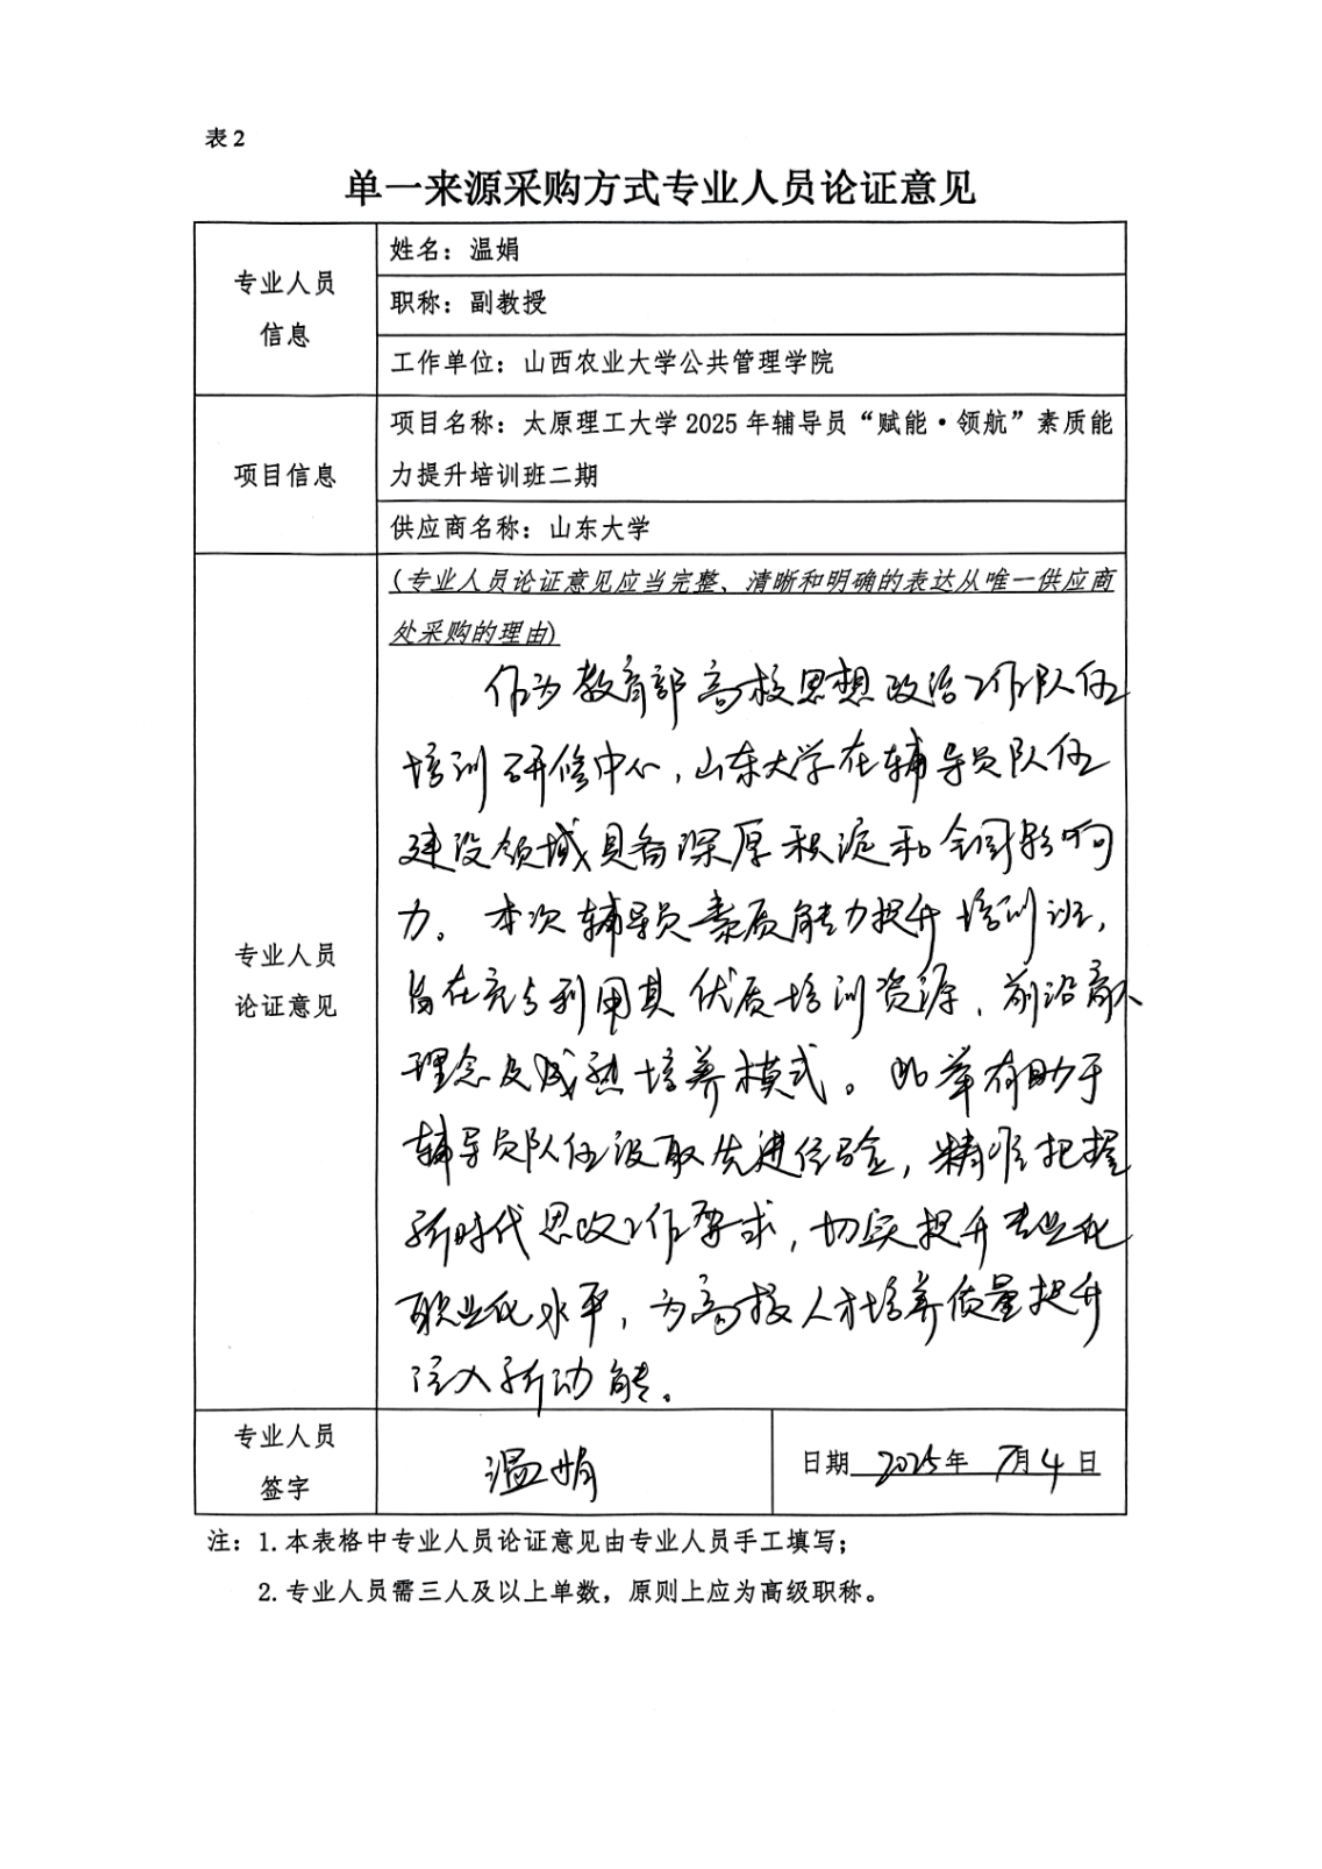 表2
单一来源采购方式专业人员论证意见
专业人员
信息
姓名：温娟
职称：副教授
工作单位：山西农业大学公共管理学院
项目信息
项目名称：太原理工大学2025年辅导员“赋能·领航”素质能
力提升培训班二期
供应商名称：山东大学
专业人员
论证意见
(专业人员论证意见应当完整、清晰和明确的表达从唯一供应商
处采购的理由)
作为教育部高校思想政治工作队伍
培训研修中心，山东大学在辅导员队伍
建设领域具备深厚积淀和全国影响
力。本次辅导员素质能力提升培训班，
旨在充分利用其优质培训资源、前沿育人
理念及成熟培养模式。此举有助于
辅导员队伍汲取先进经验，精准把握
新时代思政工作要求，切实提升专业化
职业化水平，为高校人才培养质量提升
注入新动能。
专业人员
签字
温娟
日期 2025年 7月4日
注：1.本表格中专业人员论证意见由专业人员手工填写；
2.专业人员需三人及以上单数，原则上应为高级职称。